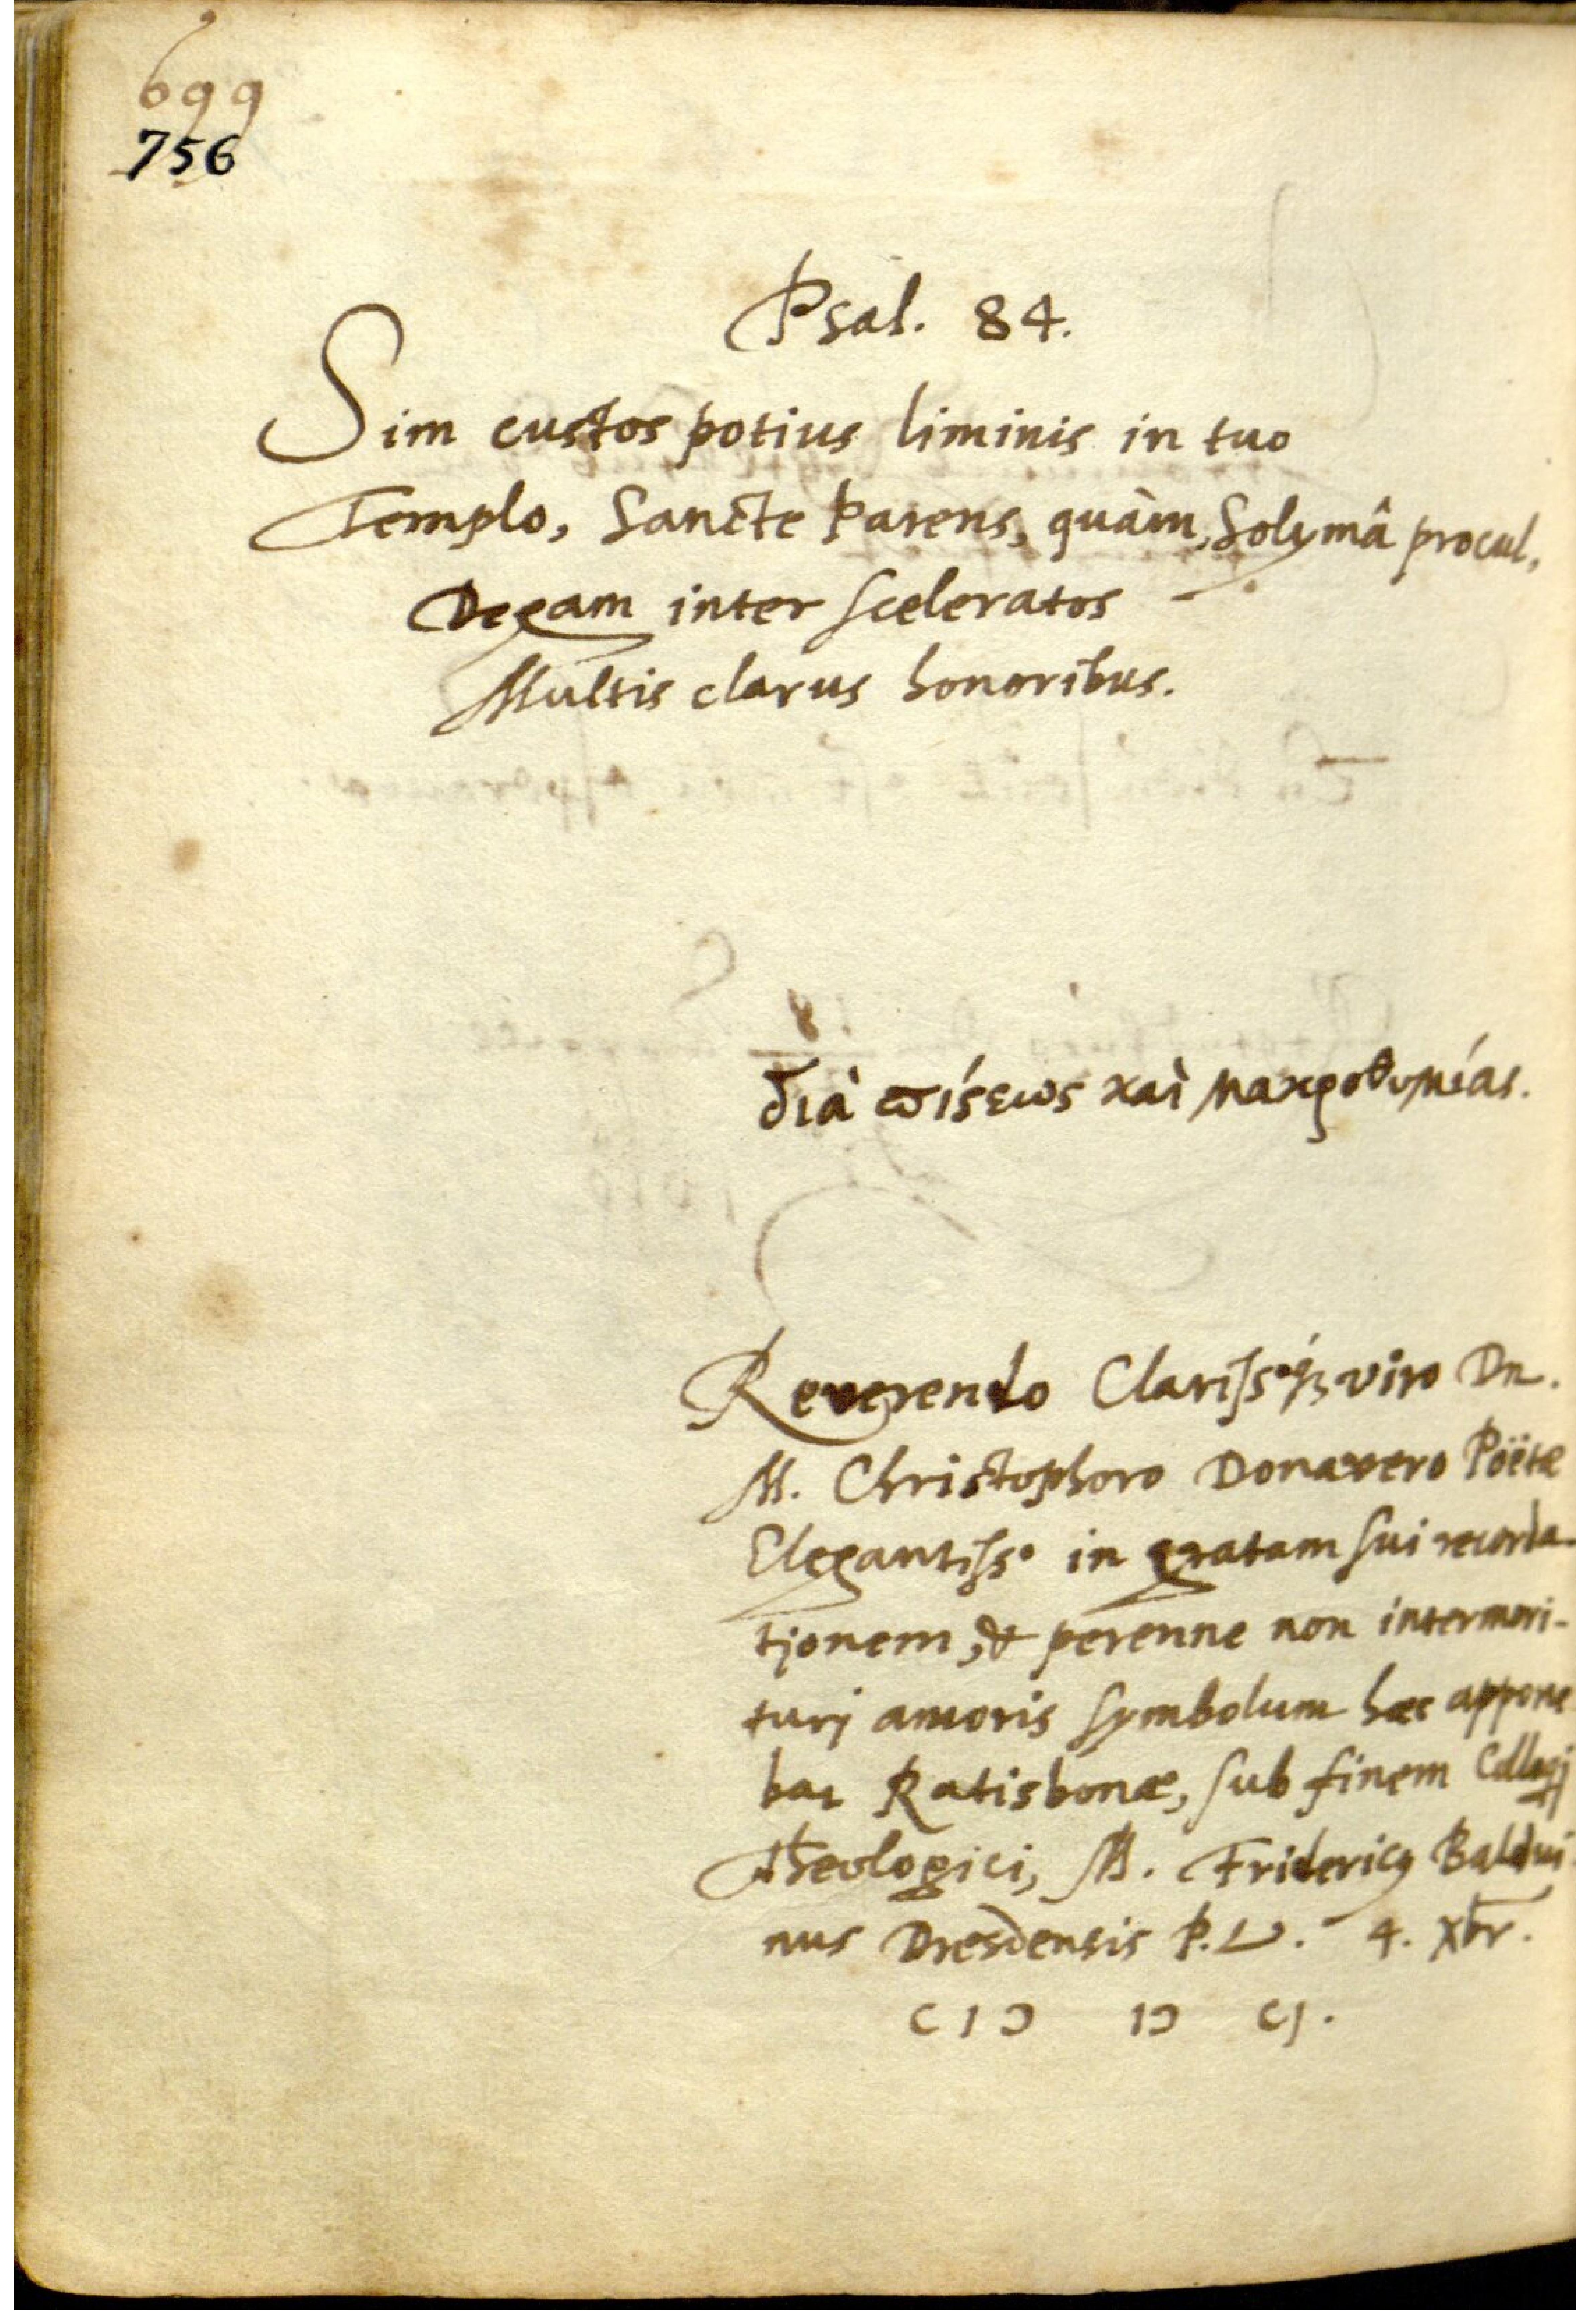 699
756
Psal. 84.
Sim custos potius liminis in tuo
Templo, Sancte Parens, quàm, Solymâ procul,
Degam inter sceleratos
Multis clarus honoribus.
διὰ ϖίϛεως καὶ μακροθυμίας.
Reverendo Clariss.º q́ꝫ viro Dn.
M. Christophoro Donavero Poëtæ
Elegantiss.º in gratam sui recorda-
tjonem, & perenne non intermori-
turj amoris symbolum hæc appone
bat Ratisbonæ, sub finem Collogj
Theologici, M. Fridericꝰ Baldui-
nus Dresdensis P.L. 4. Xbr.
CIↃ IↃ CJ.